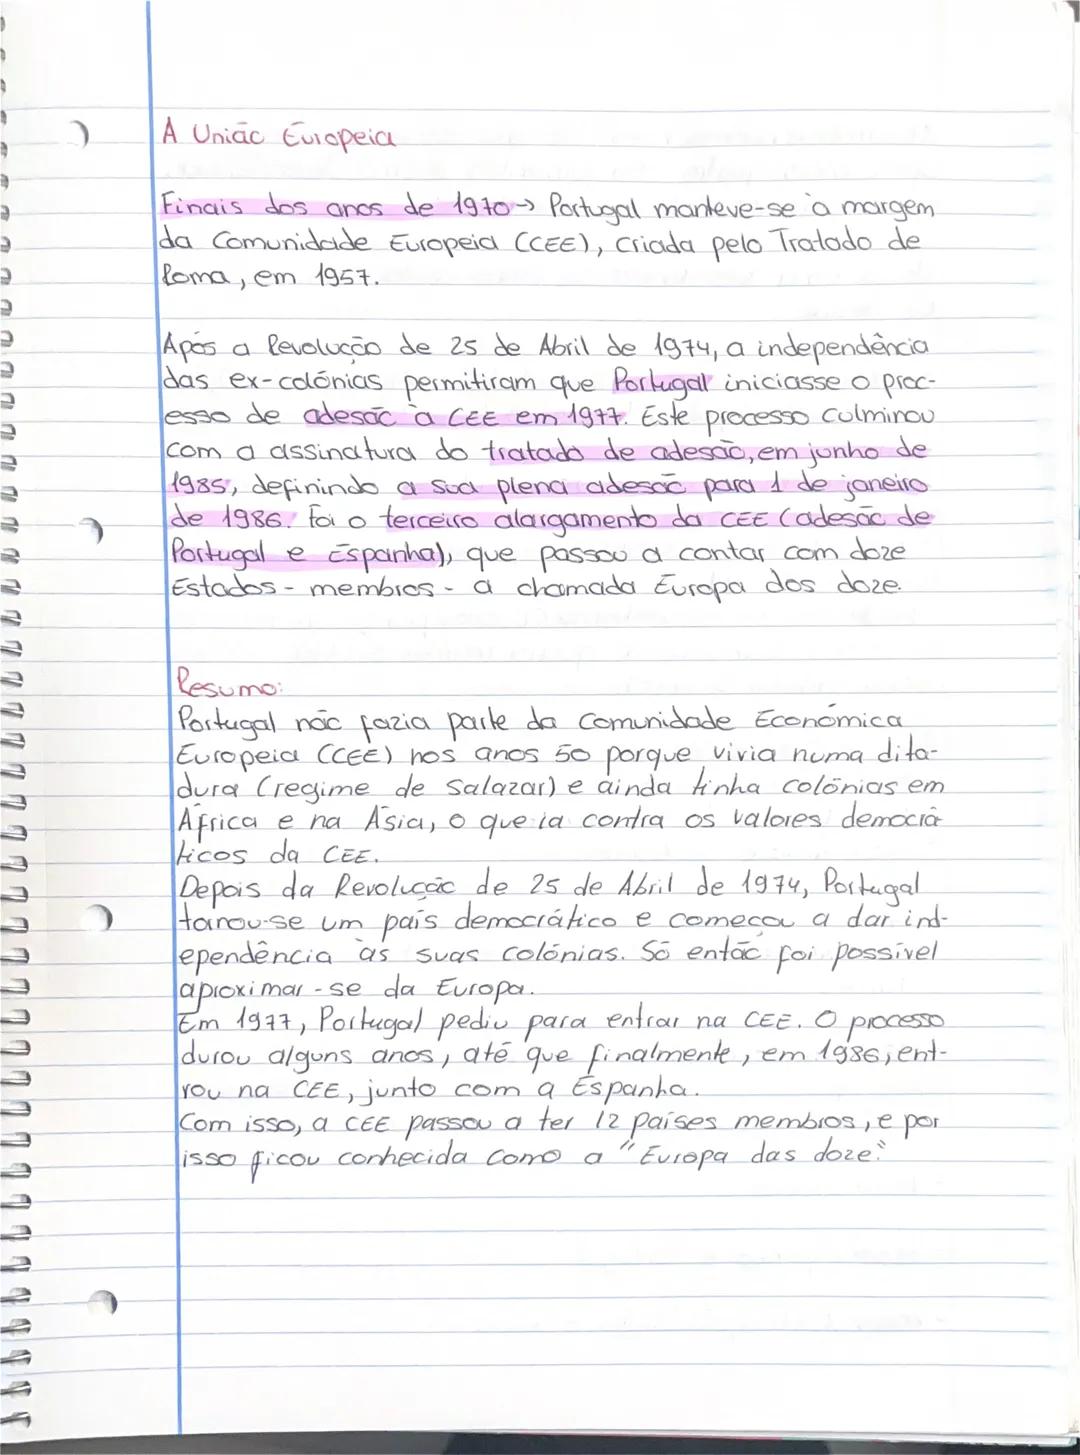 A União Europeia
Finais dos anos de 1970→ Portugal manteve-se à margem
da Comunidade Europeia (CEE), criada pelo Tratado de
Roma, em 1957.
Após a Revolução de 25 de Abril de 1974, a independência
das ex-colónias permitiram que Portugal iniciasse o proc-
esso de adesão à CEE em 1977. Este processo culminou
com a assinatura do tratado de adesão, em junho de
1985, definindo a sua plena adesão para 1 de janeiro
de 1986. Foi o terceiro alargamento da CEE (adesão de
Portugal e Espanha), que passou a contar com doze
Estados - membros - a chamada Europa dos doze.
Resumo:
Portugal não fazia parte da Comunidade Económica
Europeia (CEE) nos anos 50 porque vivia numa dita-
dura (regime de Salazar) e ainda tinha colónias em
África e na Ásia, o que ia contra os valores democrá-
ticos da CEE.
Depois da Revolução de 25 de Abril de 1974, Portugal
tornou-se um país democrático e começou a dar ind-
ependência às suas colónias. Só então foi possível
aproximar-se da Europa.
Em 1977, Portugal pediu para entrar na CEE. O processo
durou alguns anos, até que finalmente, em 1986, ent-
rou na CEE, junto com a Espanha.
Com isso, a CEE passou a ter 12 países membros, e por
isso ficou conhecida como a "Europa das doze."